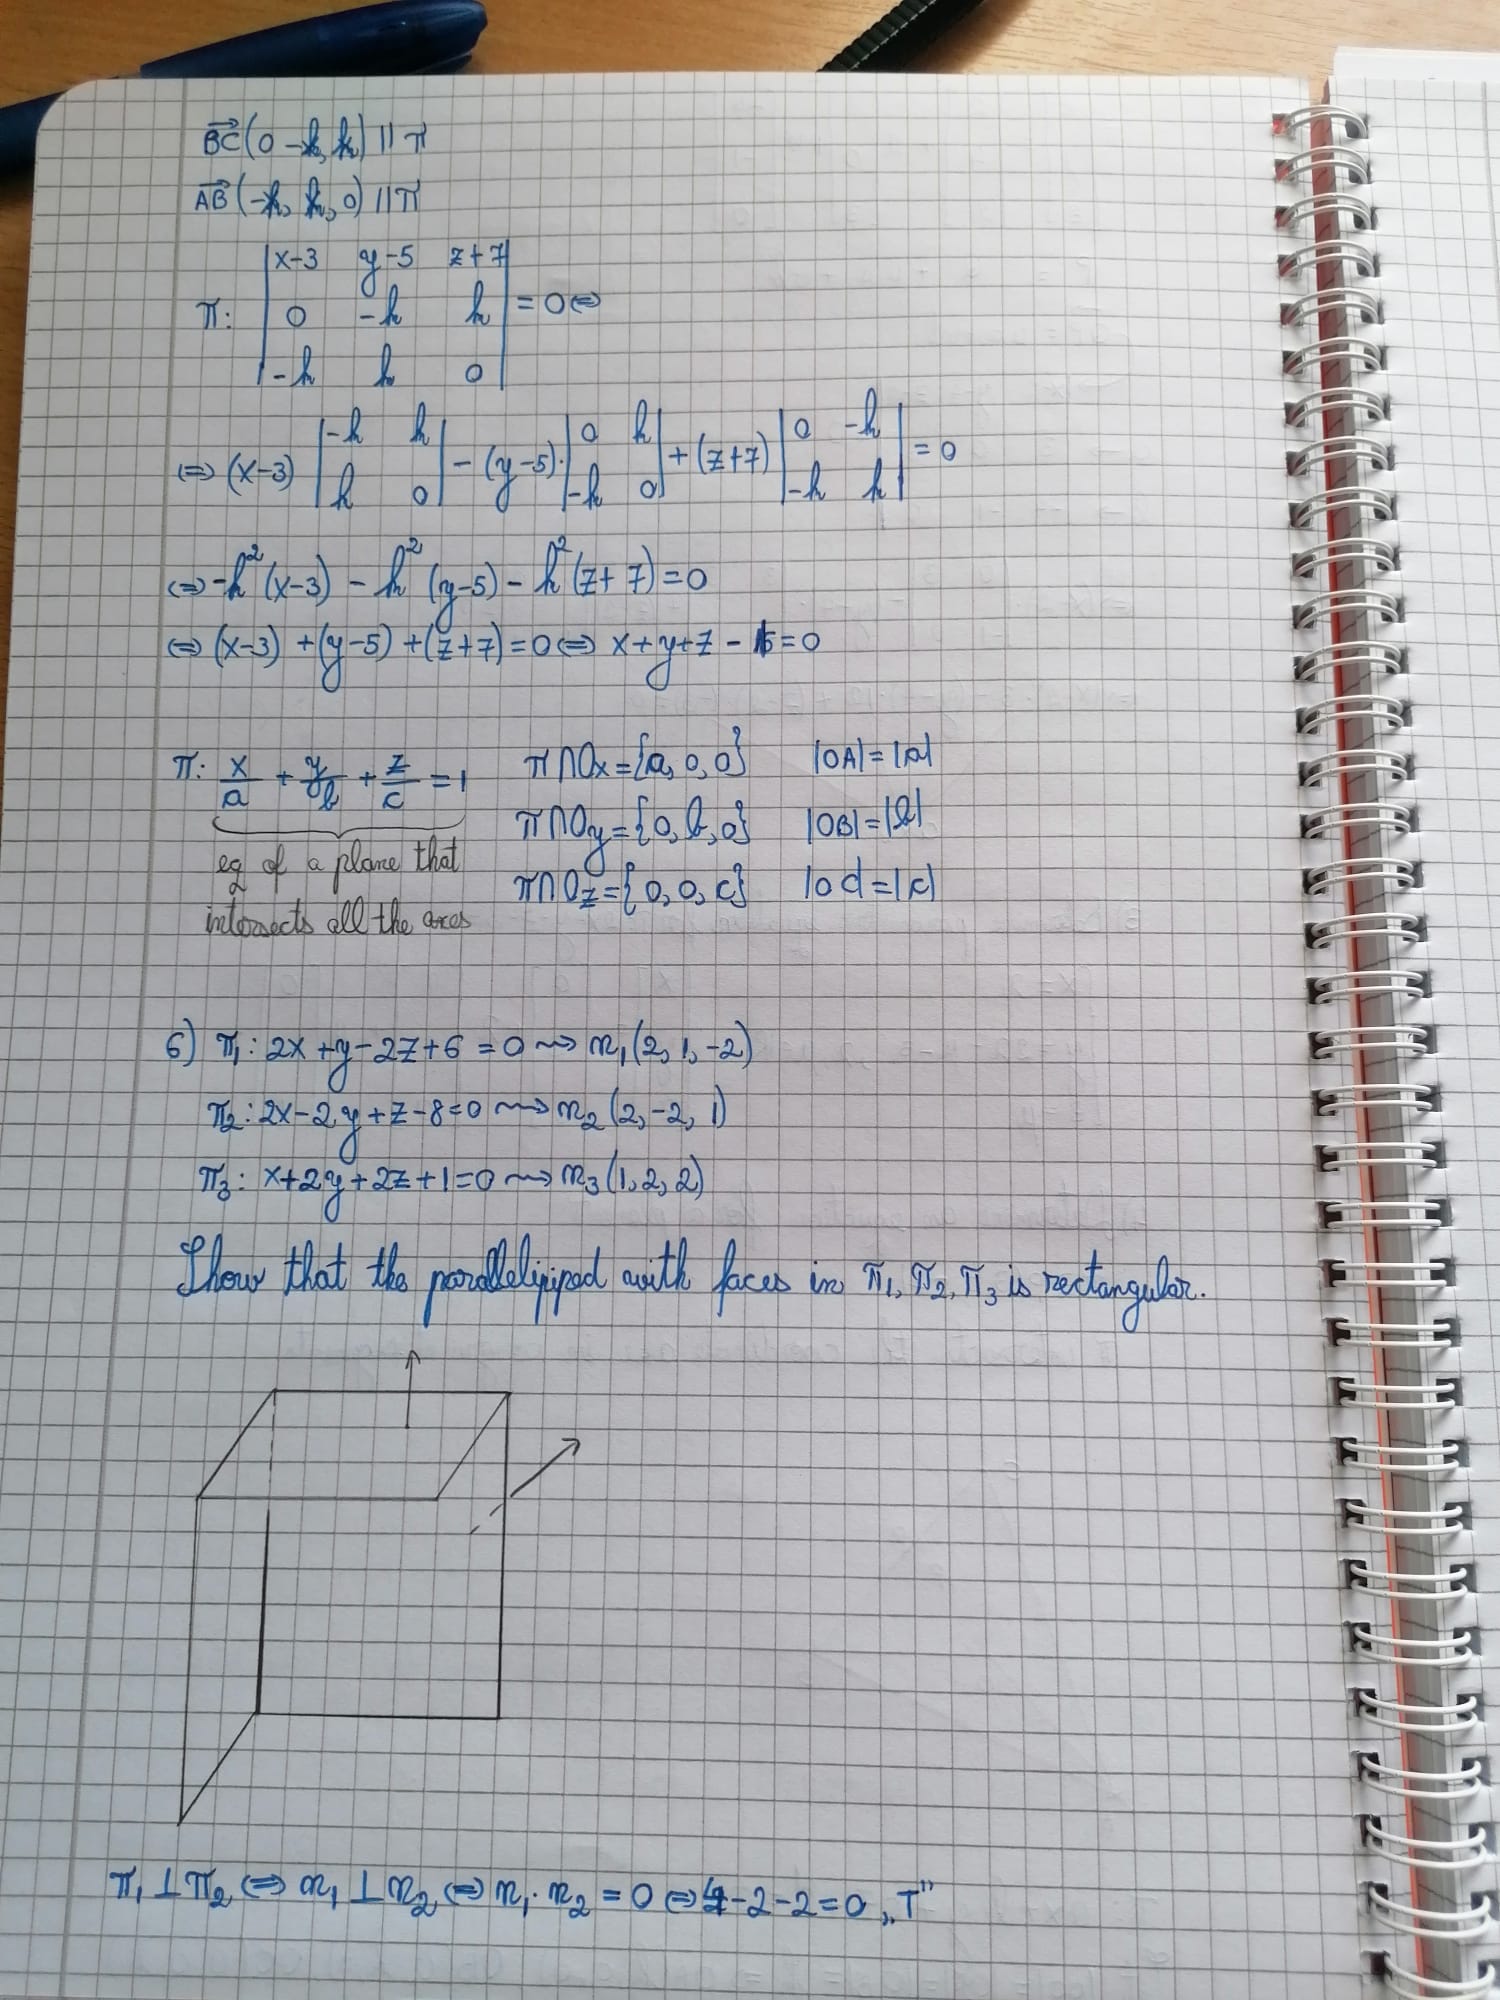 BC(0 -k, k) || π
AB(-k, k, 0) || π
π: |x-3 y-5 z+7|
|0 -k k| = 0 ⇔
|-k k 0|
⇔ (x-3) |-k k; k 0| - (y-5)·|0 k; -k 0| + (z+7) |0 -k; -k k| = 0
⇔ -k²(x-3) - k²(y-5) - k²(z+7) = 0
⇔ (x-3) + (y-5) + (z+7) = 0 ⇔ x+y+z - = 0
π: x/a + y/b + z/c = 1
eq of a plane that
intersects all the axes
π∩Ox = {a, 0, 0} |OA| = |a|
π∩Oy = {0, b, 0} |OB| = |b|
π∩Oz = {0, 0, c} |OC| = |c|
6) π₁: 2x+y-2z+6 = 0 ⇝ n₁(2, 1, -2)
π₂: 2x-2y+z-8=0 ⇝ n₂(2, -2, 1)
π₃: x+2y+2z+1=0 ⇝ n₃(1, 2, 2)
Show that the parallelipiped with faces in π₁, π₂, π₃ is rectangular.
π₁ ⊥ π₂ ⇔ n₁ ⊥ n₂ ⇔ n₁·n₂ = 0 ⇔ 4-2-2=0 „T”